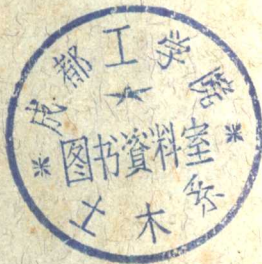 成都工学院
图书資料室
土木系